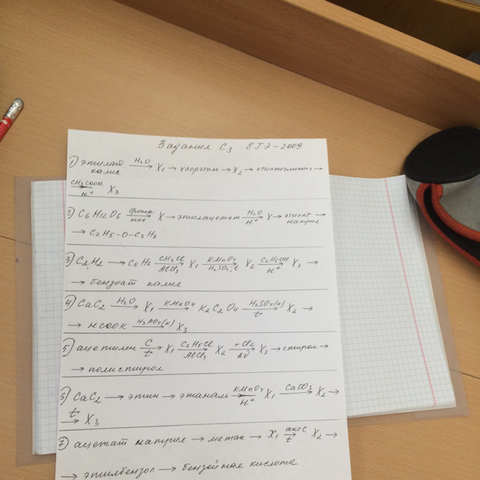 Задания С3 ЕГЭ-2009
1) этилат калия →(H2O) X1 → хлорэтан → X2 → этилэтаноат →
→(CH3COOH, H+) X3
2) C6H12O6 →(брожение) X → этилацетат →(H2O, H+) X → этилат натрия →
→ C2H5-O-C3H7
3) C2H2 → C6H6 →(CH3Cl, AlCl3) X1 →(KMnO4, H2SO4, t) X2 →(C2H5OH, H+) X3 →
→ бензоат калия
4) CaC2 →(H2O) X1 →(KMnO4) K2C2O4 →(H2SO4(к), t) X2 →
→ HCOOK →(H3PO4(к)) X3
5) ацетилен →(C, t) X1 →(C2H5Cl, AlCl3) X2 →(+Cl2, hν) X3 → стирол →
→ полистирол
6) CaC2 → этин → этаналь →(KMnO4, H+) X1 →(CaCO3) X2 →
→(t) X3
7) ацетат натрия → метан → X1 →(акт C, t) X2 →
→ этилбензол → бензойная кислота